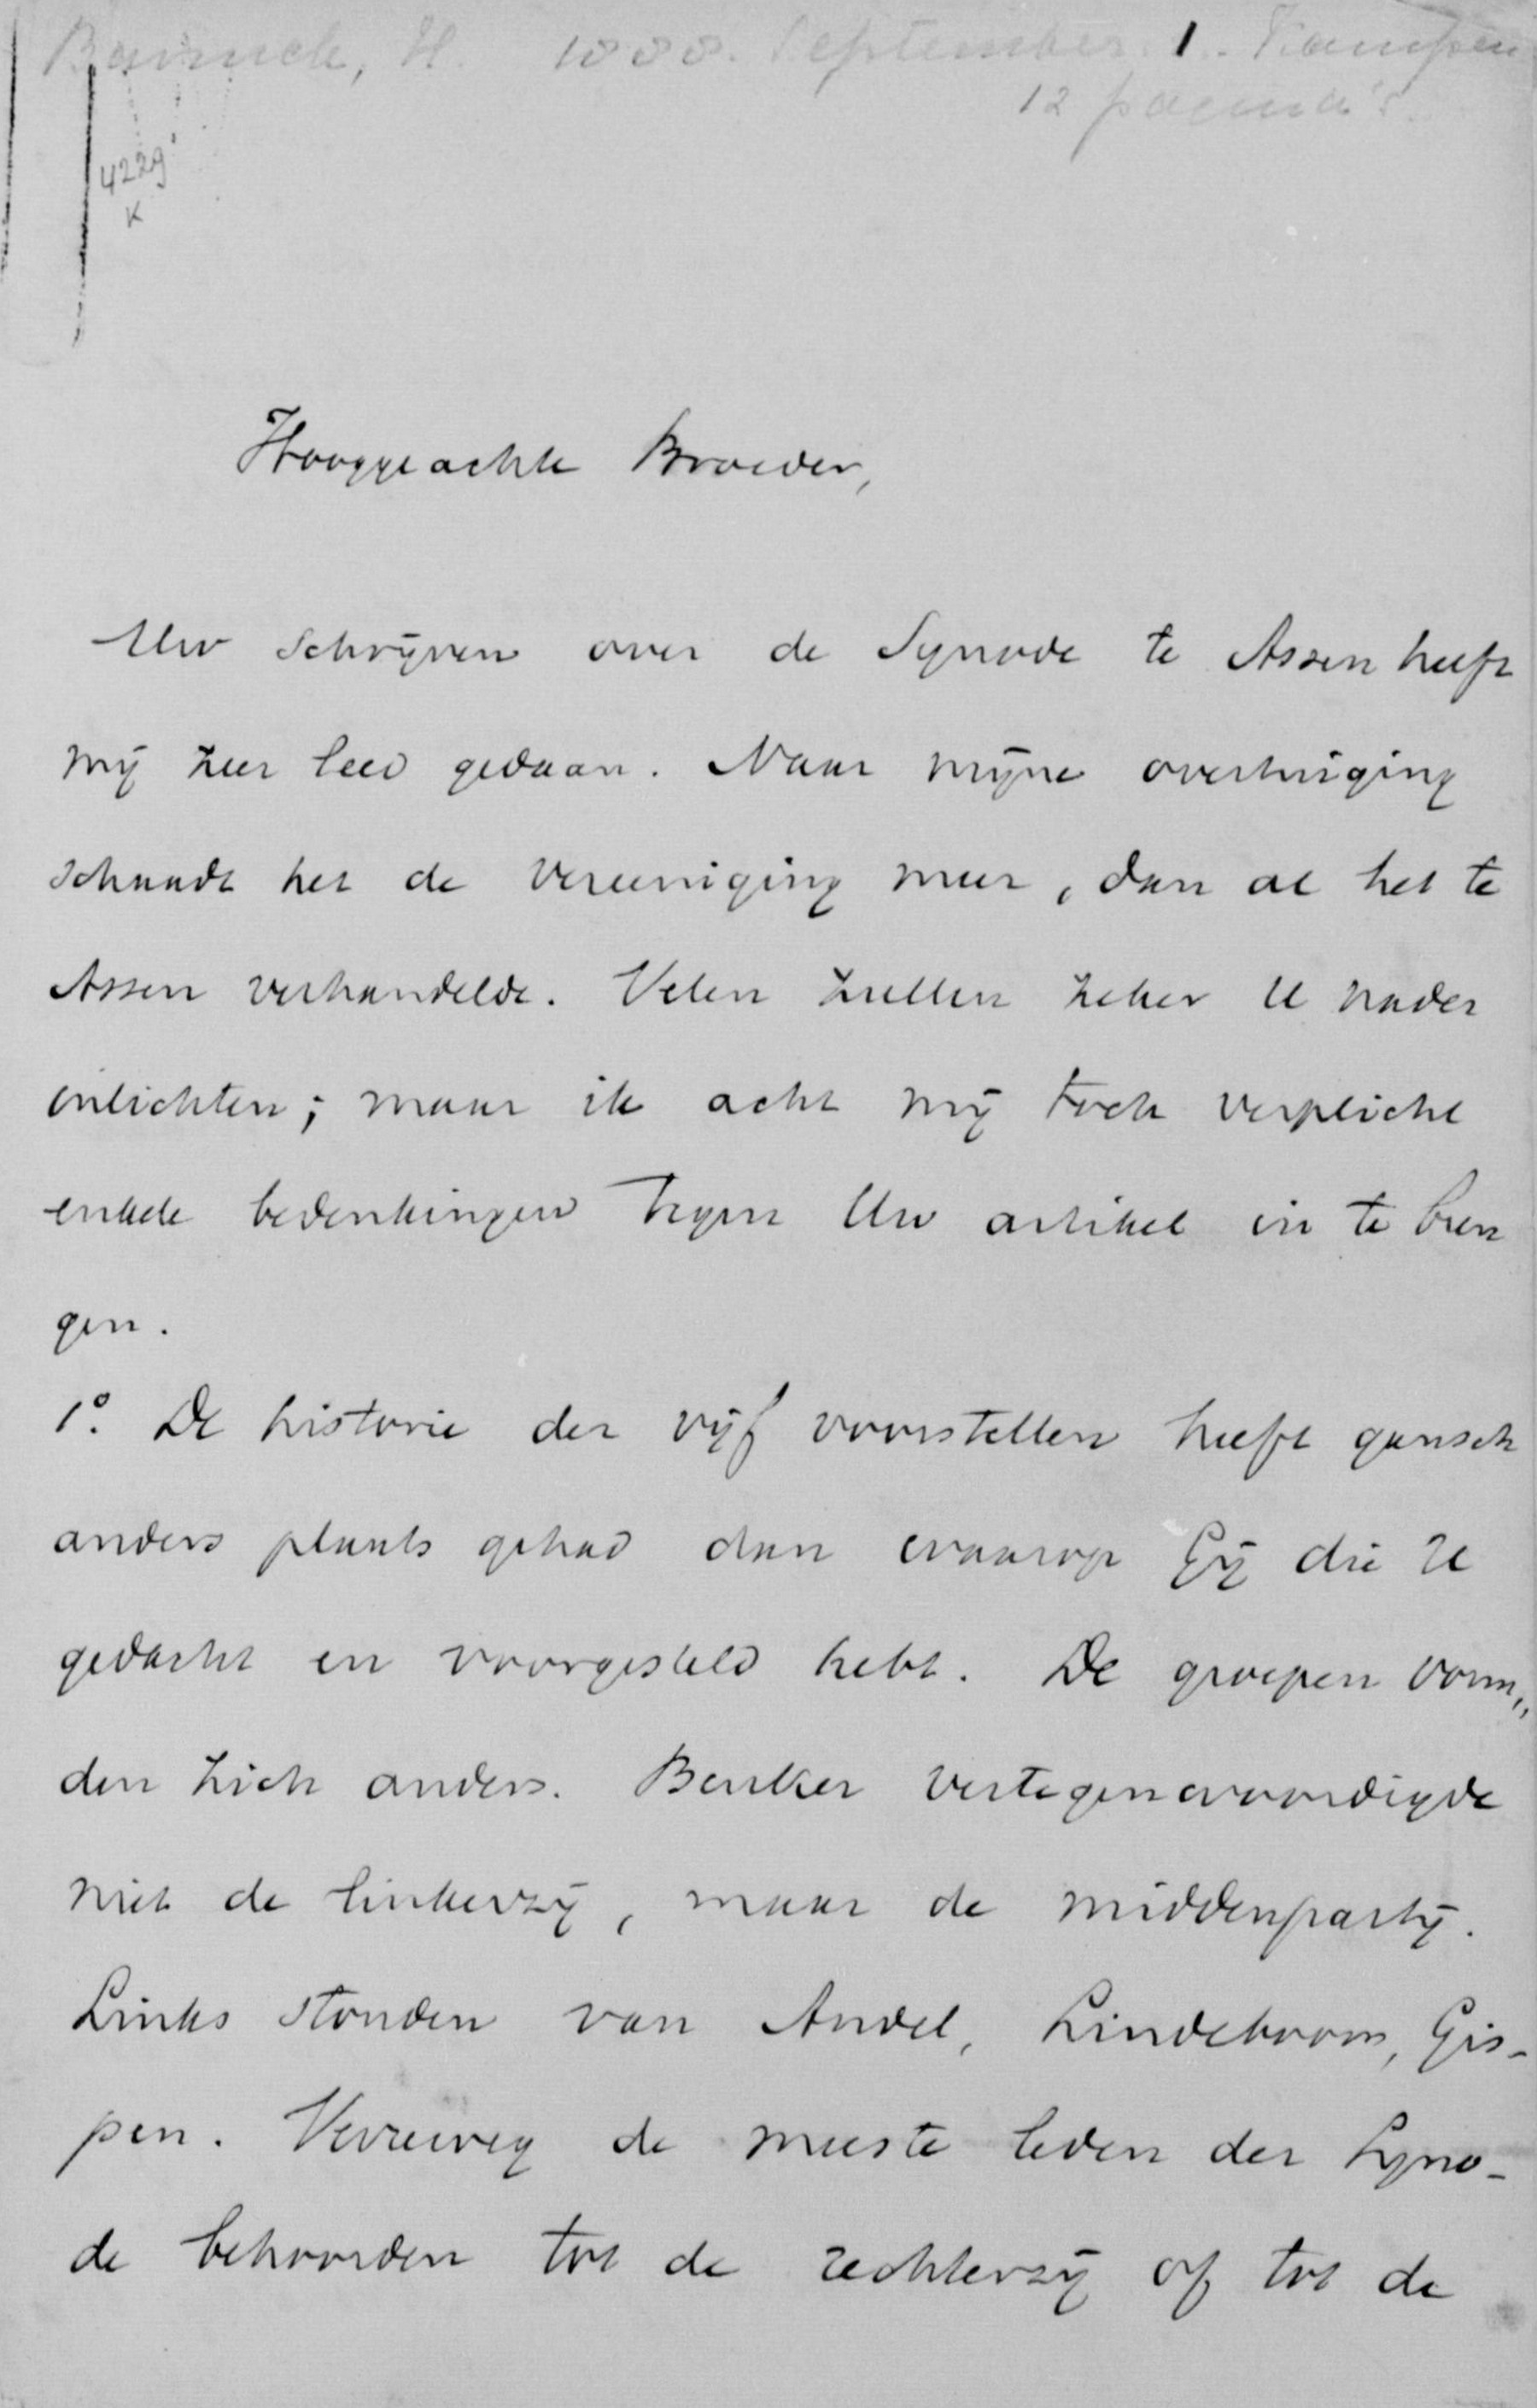 Bavinck, H. 1888. September 1. Kampen
12 pagina's.
4229
K
Hooggeachte Broeder,
Uw schrijven over de Synode te Assen heeft
mij zeer leed gedaan. Naar mijne overtuiging
schaadt het de vereeniging meer, dan al het te
Assen verhandelde. Velen zullen zeker U nader
inlichten; maar ik acht mij toch verplicht
enkele bedenkingen tegen Uw artikel in te bren
gen.
1° De historie der vijf voorstellen heeft gansch
anders plaats gehad dan waarop Gij die U
gedacht en voorgesteld hebt. De groepen vorm„
den zich anders. Beuker vertegenwoordigde
niet de linkerzij, maar de middenpartij.
Links stonden van Andel, Lindeboom, Gis-
pen. Verreweg de meeste leden der Syno-
de behoorden tot de rechterzij of tot de